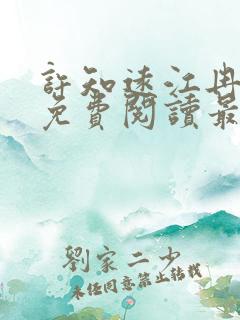 許知遠江冉
免費閱讀最
劉家二少
未經同意禁止轉載